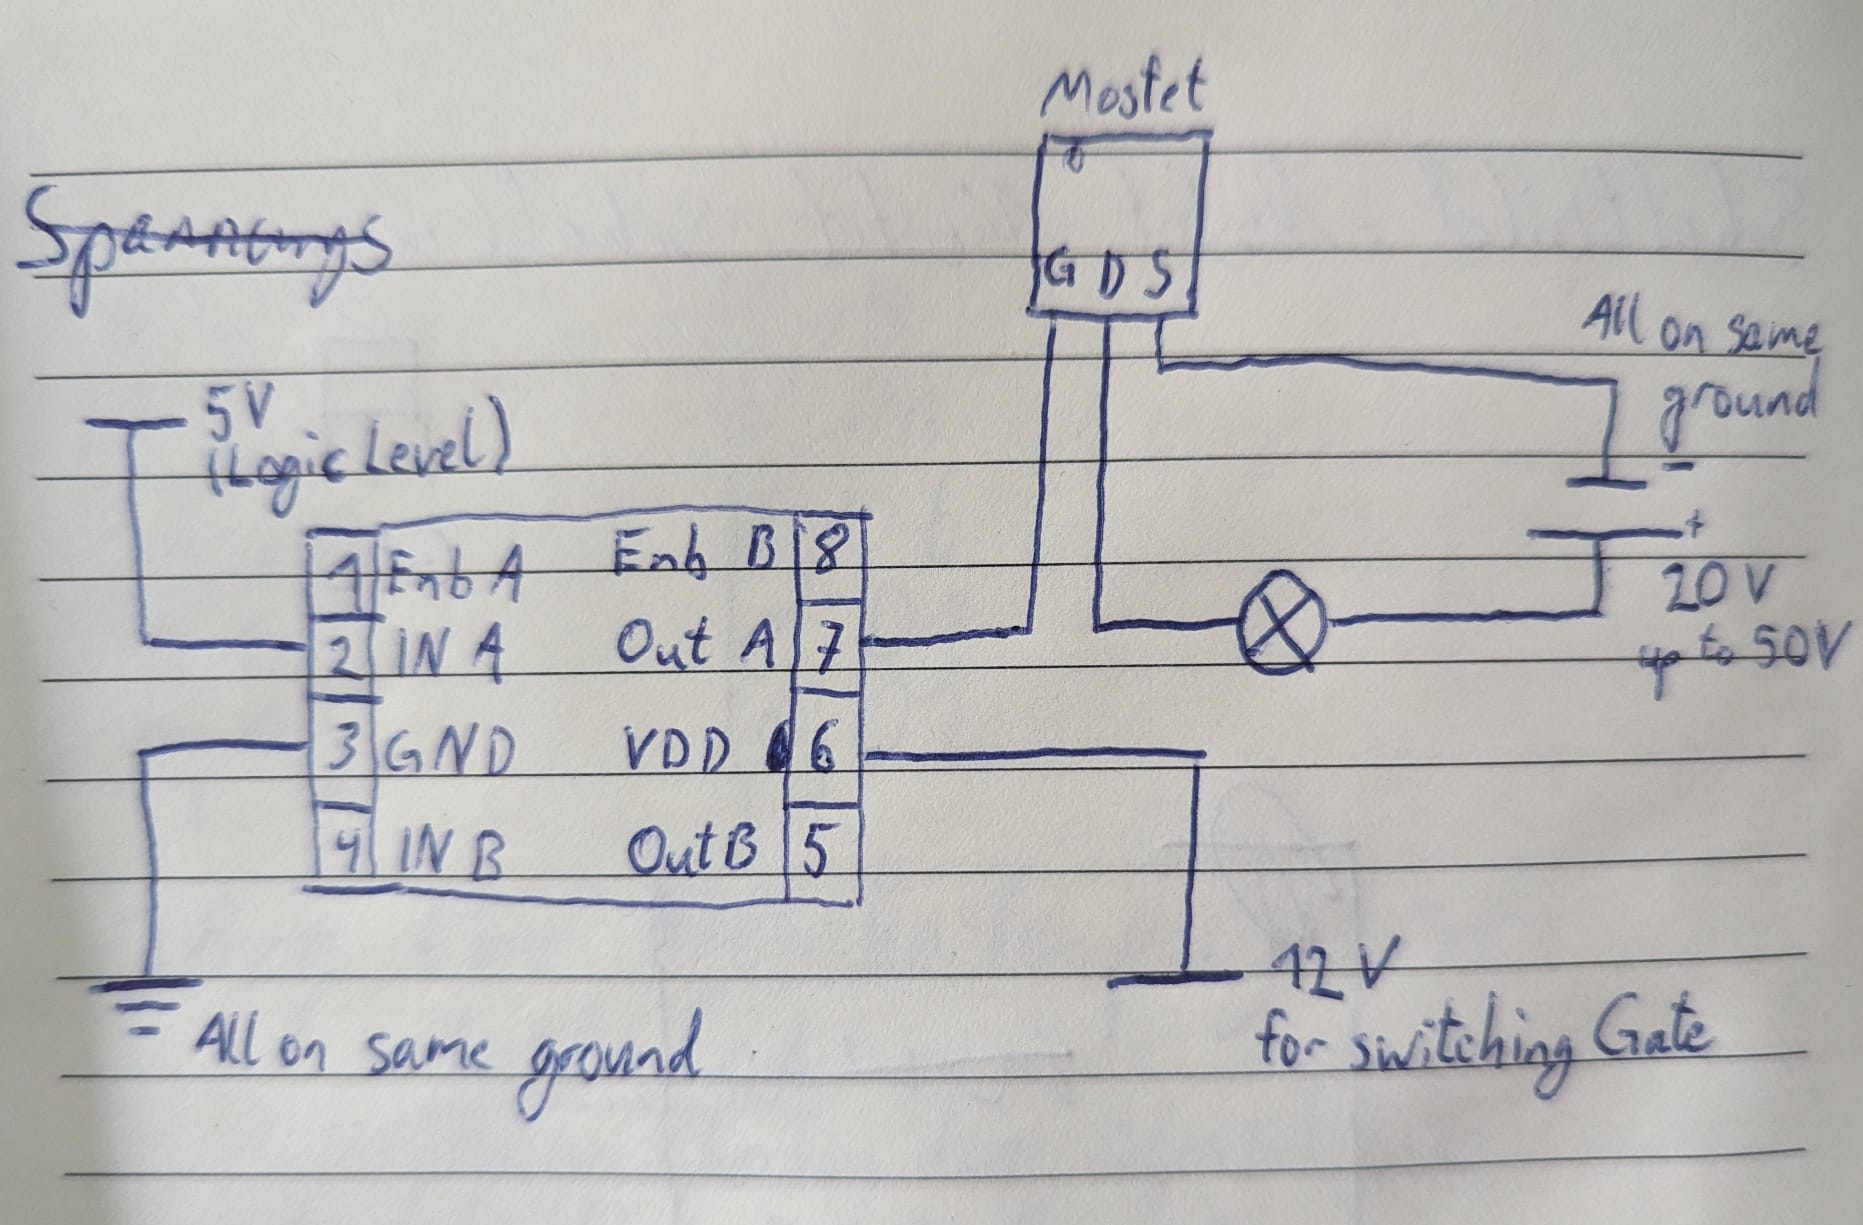 Mosfet
Spannungs
G D S
All on same
ground
5V
(Logic Level)
-
+
20V
up to 50V
1 Enb A Enb B 8
2 IN A Out A 7
3 GND VDD 6
4 IN B Out B 5
12 V
for switching Gate
All on same ground